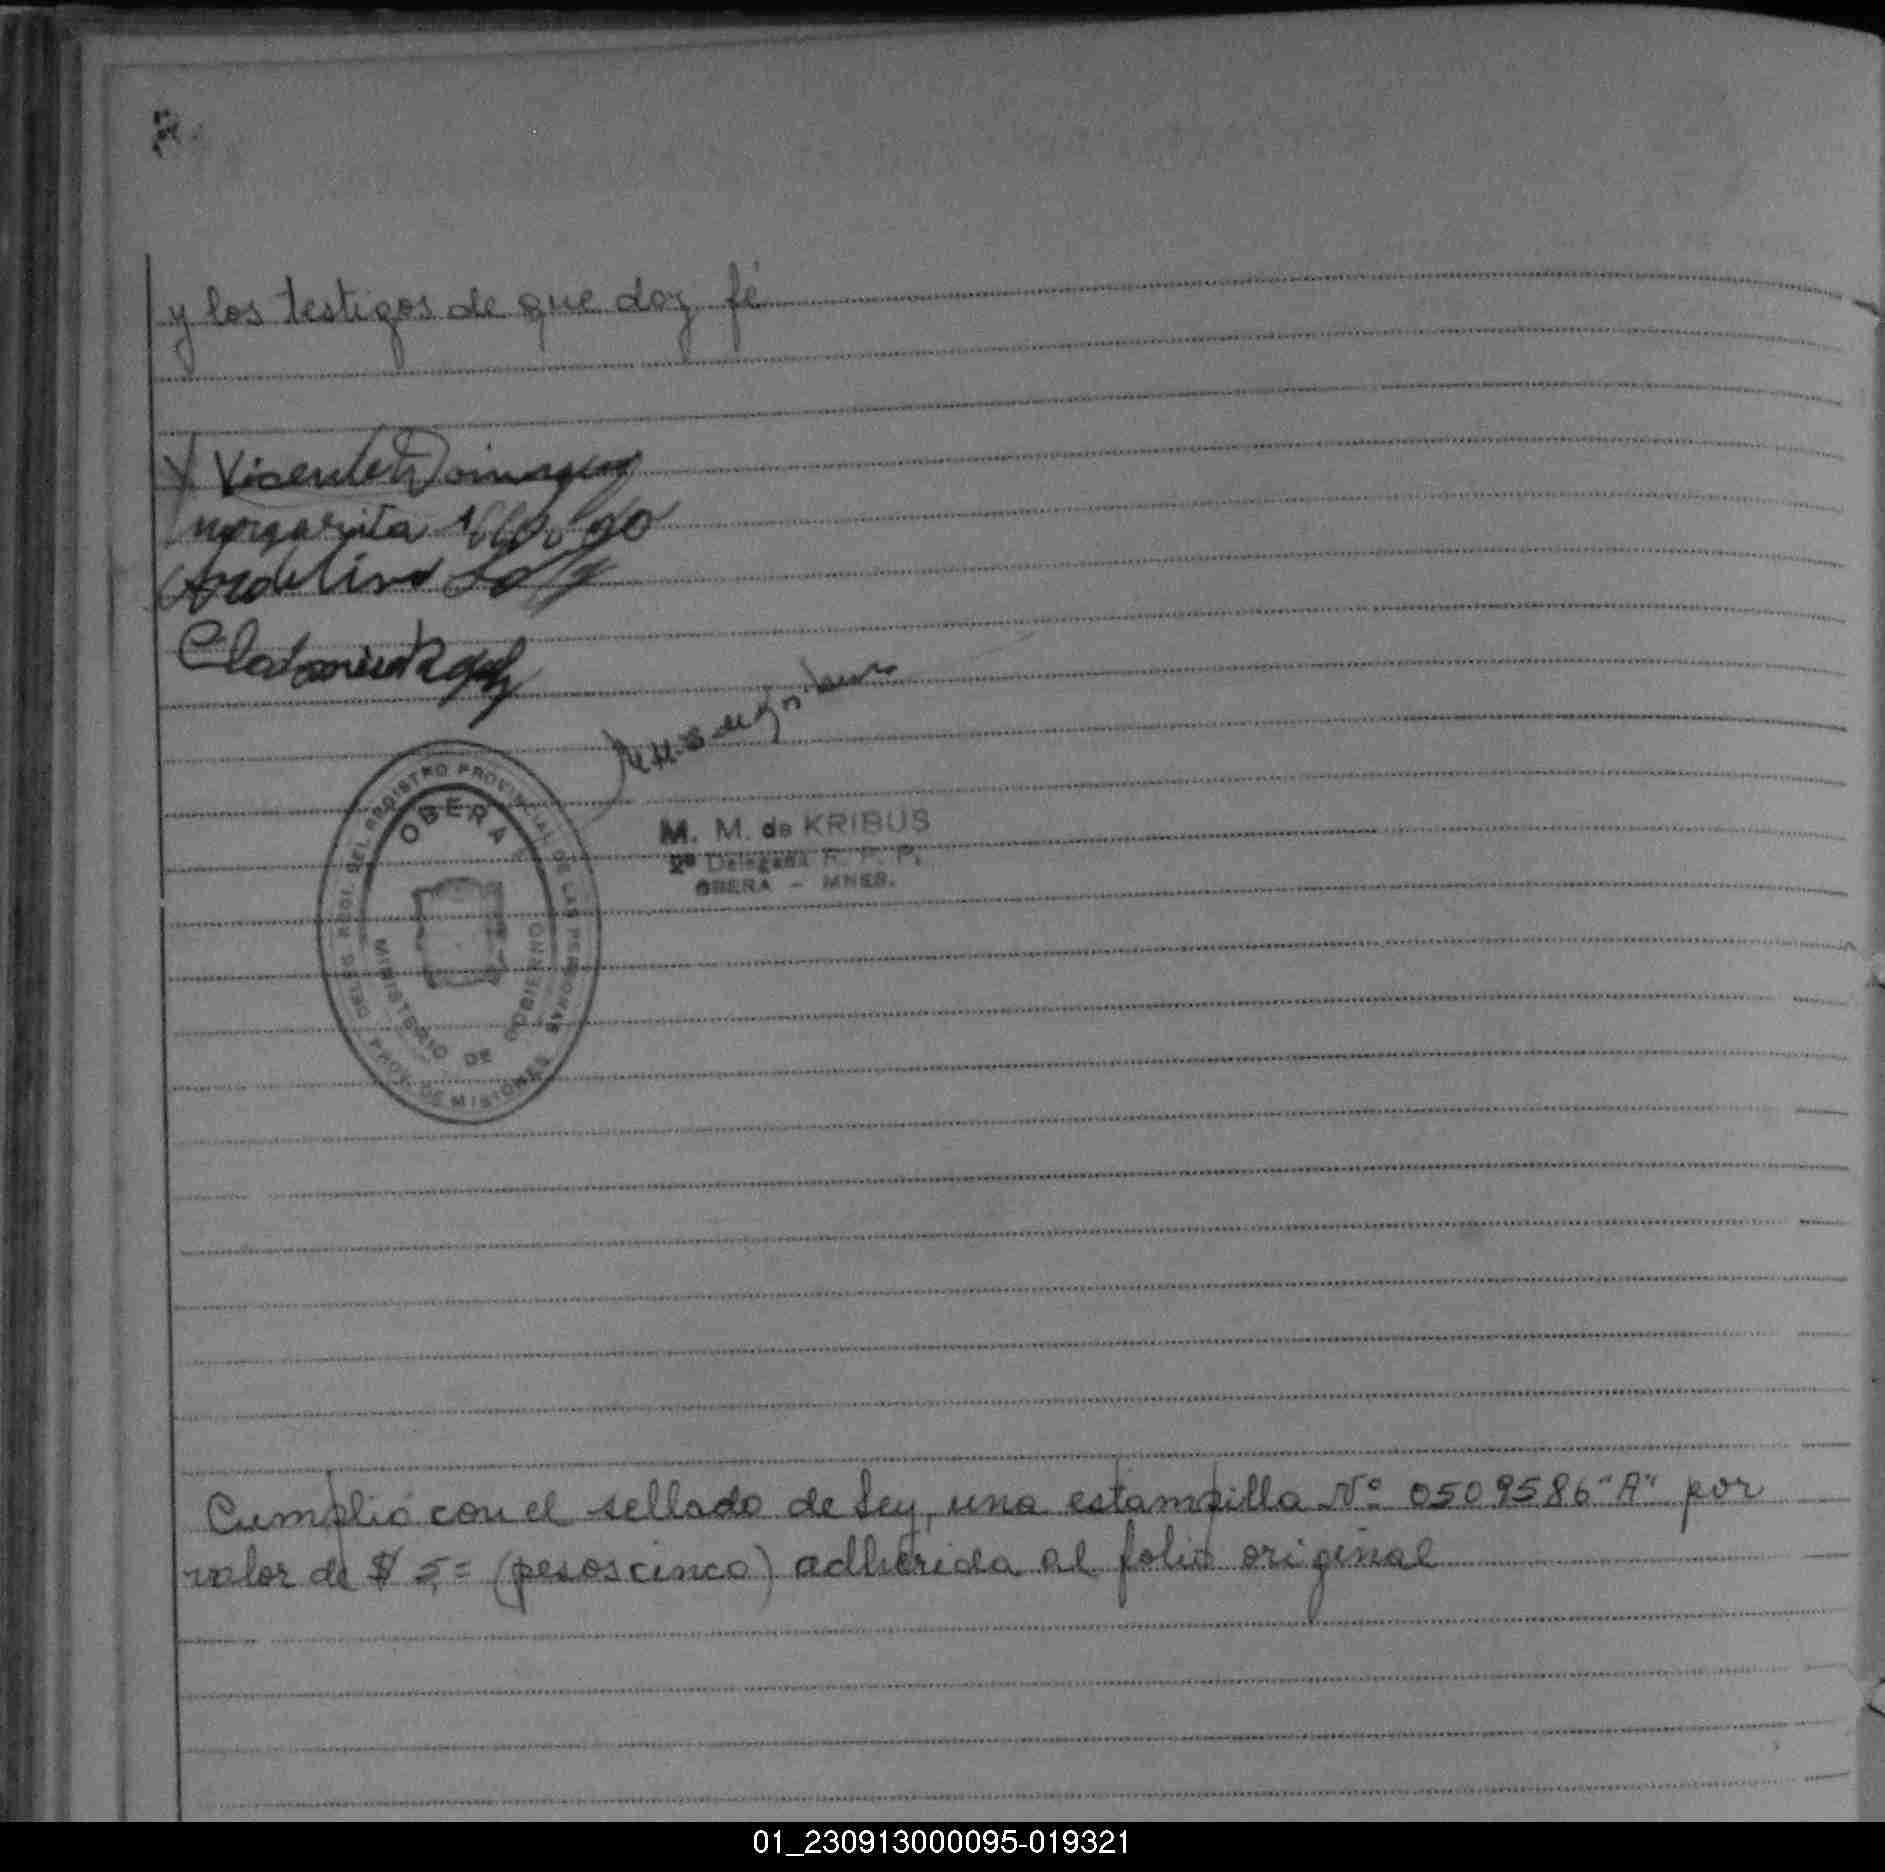 y los testigos de que doy fé
Vicente
Margarita
M. M. de KRIBUS
2ª Delegada R. P. P.
OBERA - MNES.
DELEG. REGI. DEL REGISTRO PROVINCIAL DE LAS PERSONAS
OBERA
MINISTERIO DE GOBIERNO
PROV. DE MISIONES
Cumplió con el sellado de Ley, una estampilla Nº 0509586 "A" por
valor de $ 5,= (pesos cinco) adherida al folio original
01_230913000095-019321